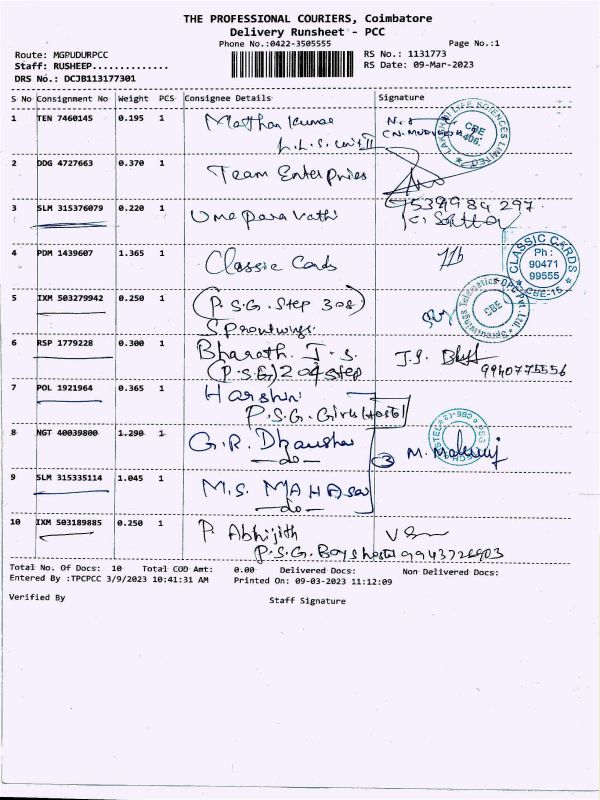 THE PROFESSIONAL COURIERS, Coimbatore
Delivery Runsheet - PCC
Phone No.:0422-3505555
Page No.:1
Route: MGPUDURPCC
RS No.: 1131773
Staff: RUSHEEP..............
RS Date: 09-Mar-2023
DRS No.: DCJB113177301
S No Consignment No Weight PCS Consignee Details Signature
1 TEN 7460145 0.195 1 Matthan Kumar
L.L.S. unit II
LIFE SCIENCES LIMITED
CBE
2 DDG 4727663 0.370 1 Team Enterprises
3 SLM 315376079 0.220 1 Uma para vathi
4 PDM 1439607 1.365 1 Classic Cards
CLASSIC CARDS
Ph :
90471
99555
CBE-15
5 IXM 503279942 0.250 1 (P.S.G. Step 308)
Sproutwings
CBE
6 RSP 1779228 0.300 1 Bharath. J.S.
(P.S.G) 204 step
9940775556
7 POL 1921964 0.365 1 Harshini
P.S.G. Girls Hostel
8 NGT 40039800 1.290 1 G.R. Dhanusha
-do-
3
9 SLM 315335114 1.045 1 M.S. MAHASri
-do-
10 IXM 503189885 0.250 1 P. Abhijith
P.S.G. Boys hostel 9943726903
Total No. Of Docs: 10 Total COD Amt: 0.00 Delivered Docs: Non Delivered Docs:
Entered By :TPCPCC 3/9/2023 10:41:31 AM Printed On: 09-03-2023 11:12:09
Verified By Staff Signature